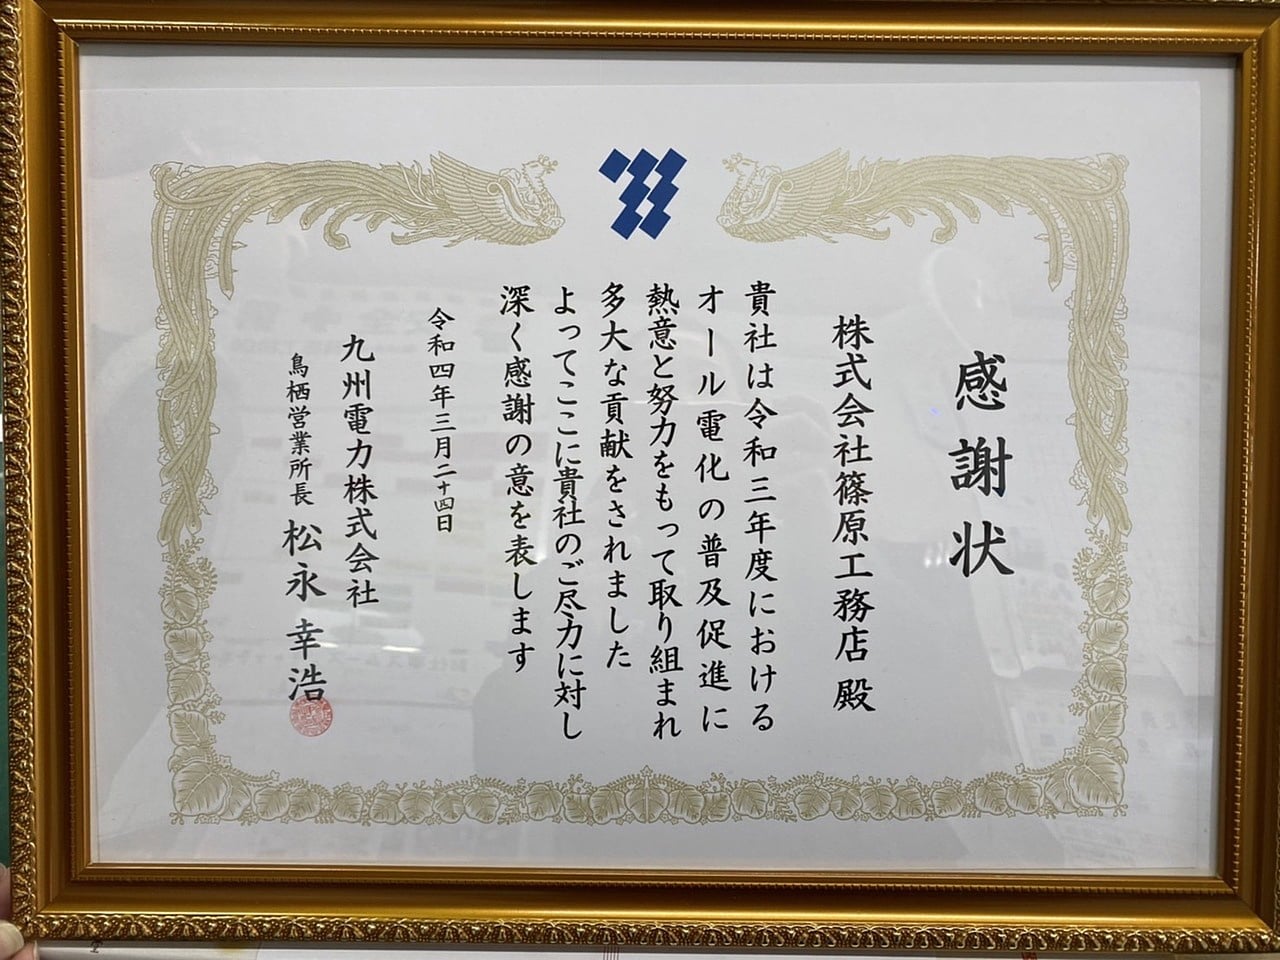 感謝状
株式会社篠原工務店 殿
貴社は令和三年度における
オール電化の普及促進に
熱意と努力をもって取り組まれ
多大な貢献をされました
よってここに貴社のご尽力に対し
深く感謝の意を表します
令和四年三月二十四日
九州電力株式会社
鳥栖営業所長 松永 幸浩